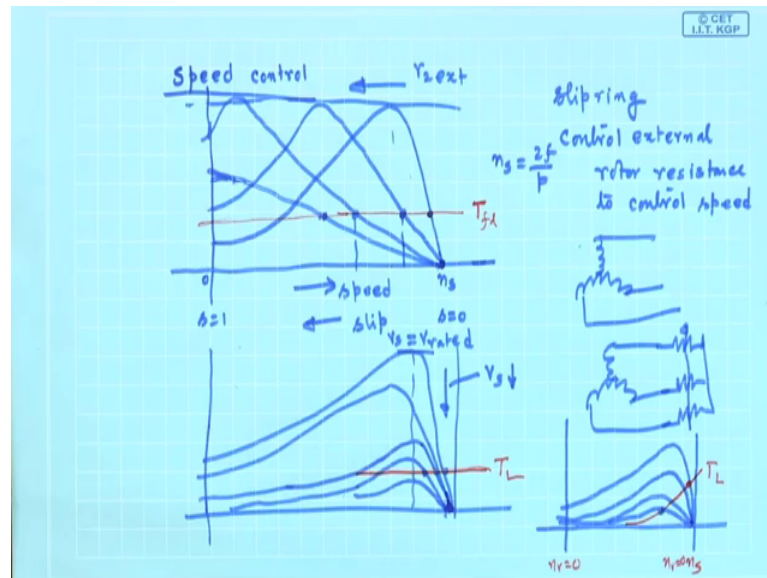 © CET
I.I.T. KGP
Speed control
r2ext
slipring
control external
rotor resistance
to control speed
ns = 2f/p
Tfl
0
ns
speed
s=1
slip
s=0
Vs = Vrated
Vs ↓
TL
TL
nr=0